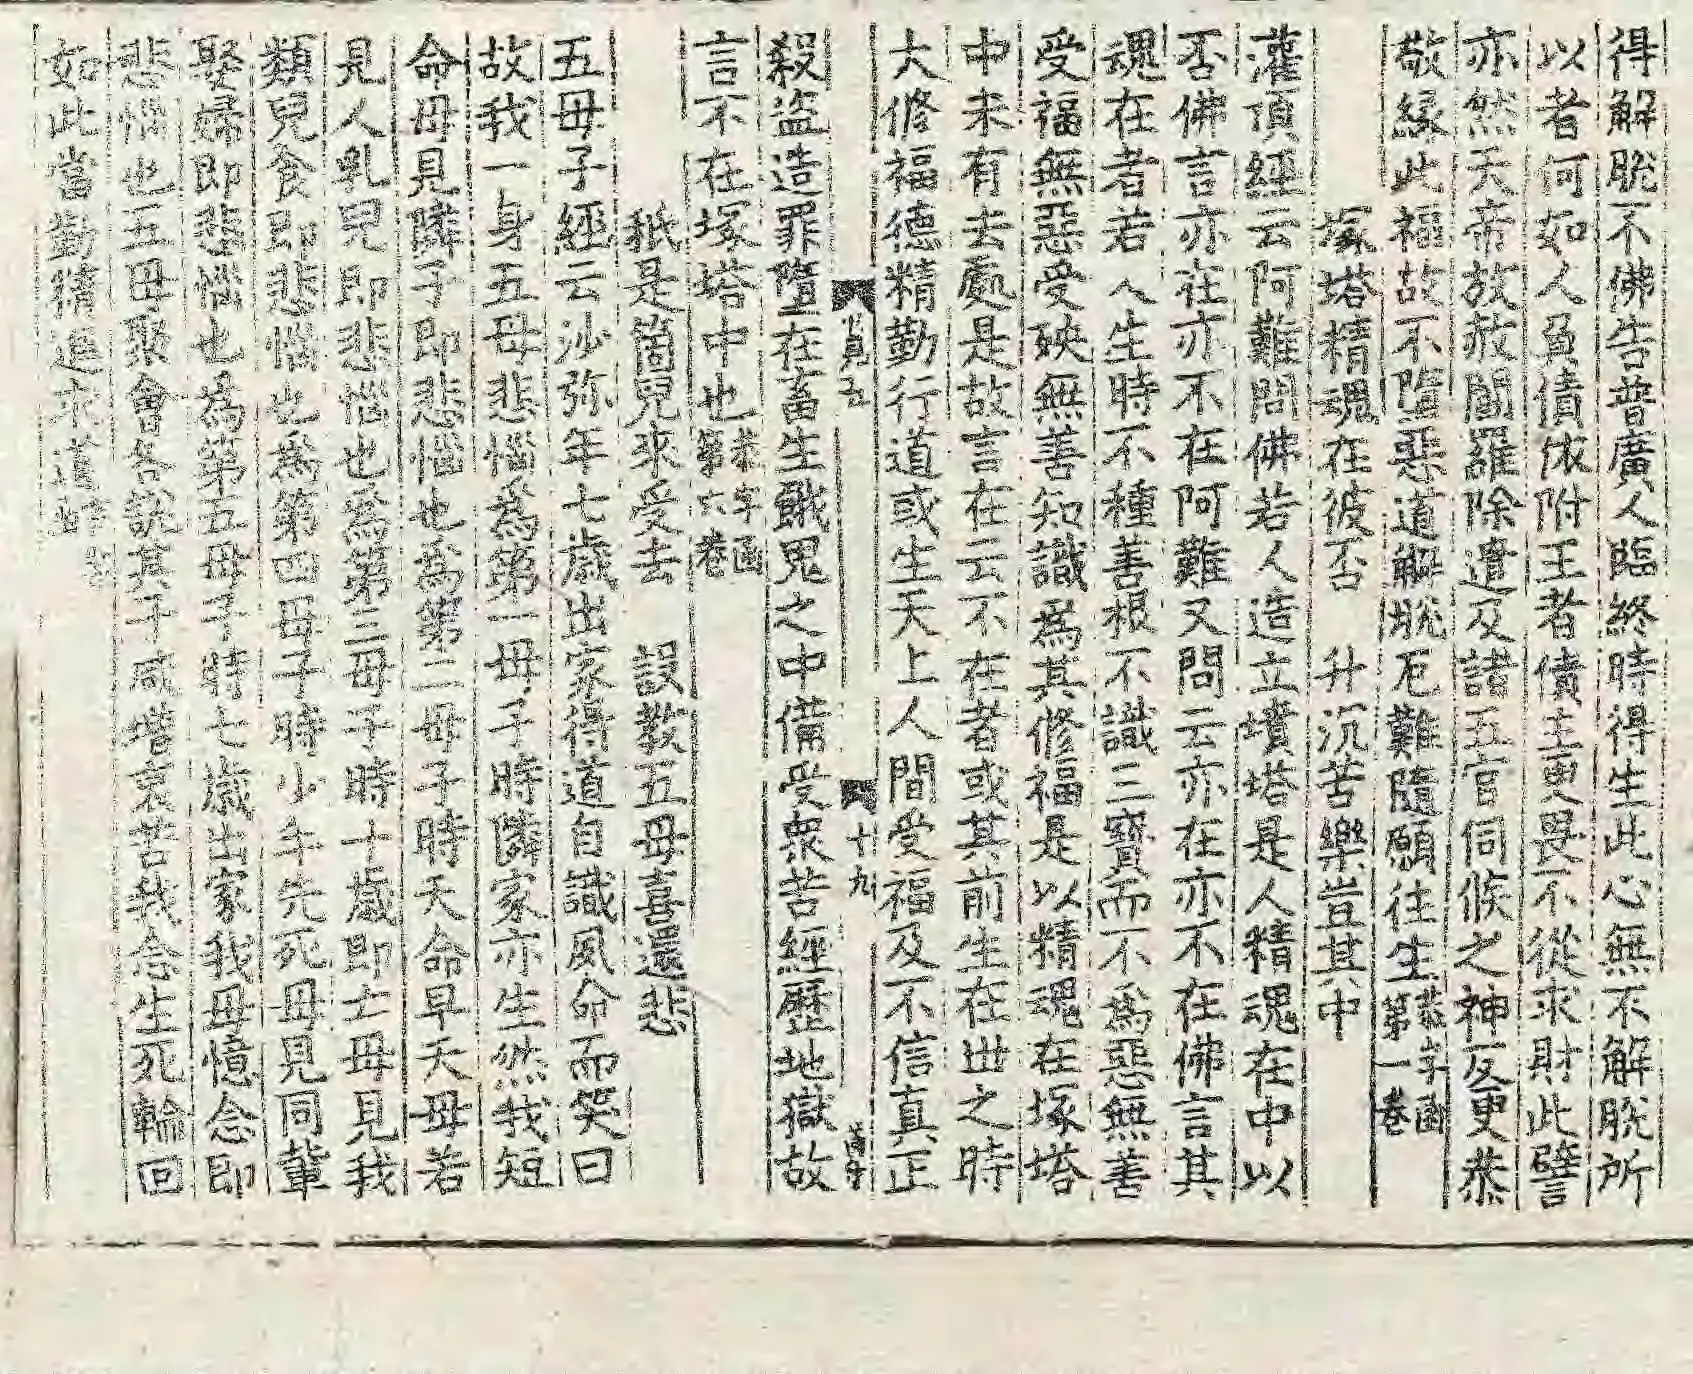 得解脫不佛告普廣人臨終時得生此心無不解脫所
以者何如人負債依附王者債主更畏不從求財此譬
亦然天帝放赦閻羅除遣及諸五官伺候之神反更恭
敬緣此福故不墮惡道解脫厄難隨願往生恭字函第一卷
塚塔精魂在彼否 升沉苦樂豈其中
灌頂經云阿難問佛若人造立墳塔是人精魂在中以
否佛言亦在亦不在阿難又問云亦在亦不在佛言其
魂在者若人生時不種善根不識三寶而不為惡無善
受福無惡受殃無善知識為其修福是以精魂在塚塔
中未有去處是故言在云不在者或其前生在世之時
大修福德精勤行道或生天上人間受福及不信真正
貞五 十九
殺盜造罪墮在畜生餓鬼之中備受眾苦經歷地獄故
言不在塚塔中也恭字函第六卷
秖是箇兒來受去 設教五母喜還悲
五母子經云沙弥年七歲出家得道自識夙命而笑曰
故我一身五母悲惱為第一母子時隣家亦生然我短
命母見隣子即悲惱也為第二母子時天命早夭母若
見人乳兒即悲惱也為第三母子時十歲即亡母見我
類兒食即悲惱也為第四母子時少年先死母見同輩
娶婦即悲惱也為第五母子時七歲出家我母憶念即
悲惱也五母聚會各說其子咸增哀苦我念生死輪回
如此當勤精進求道